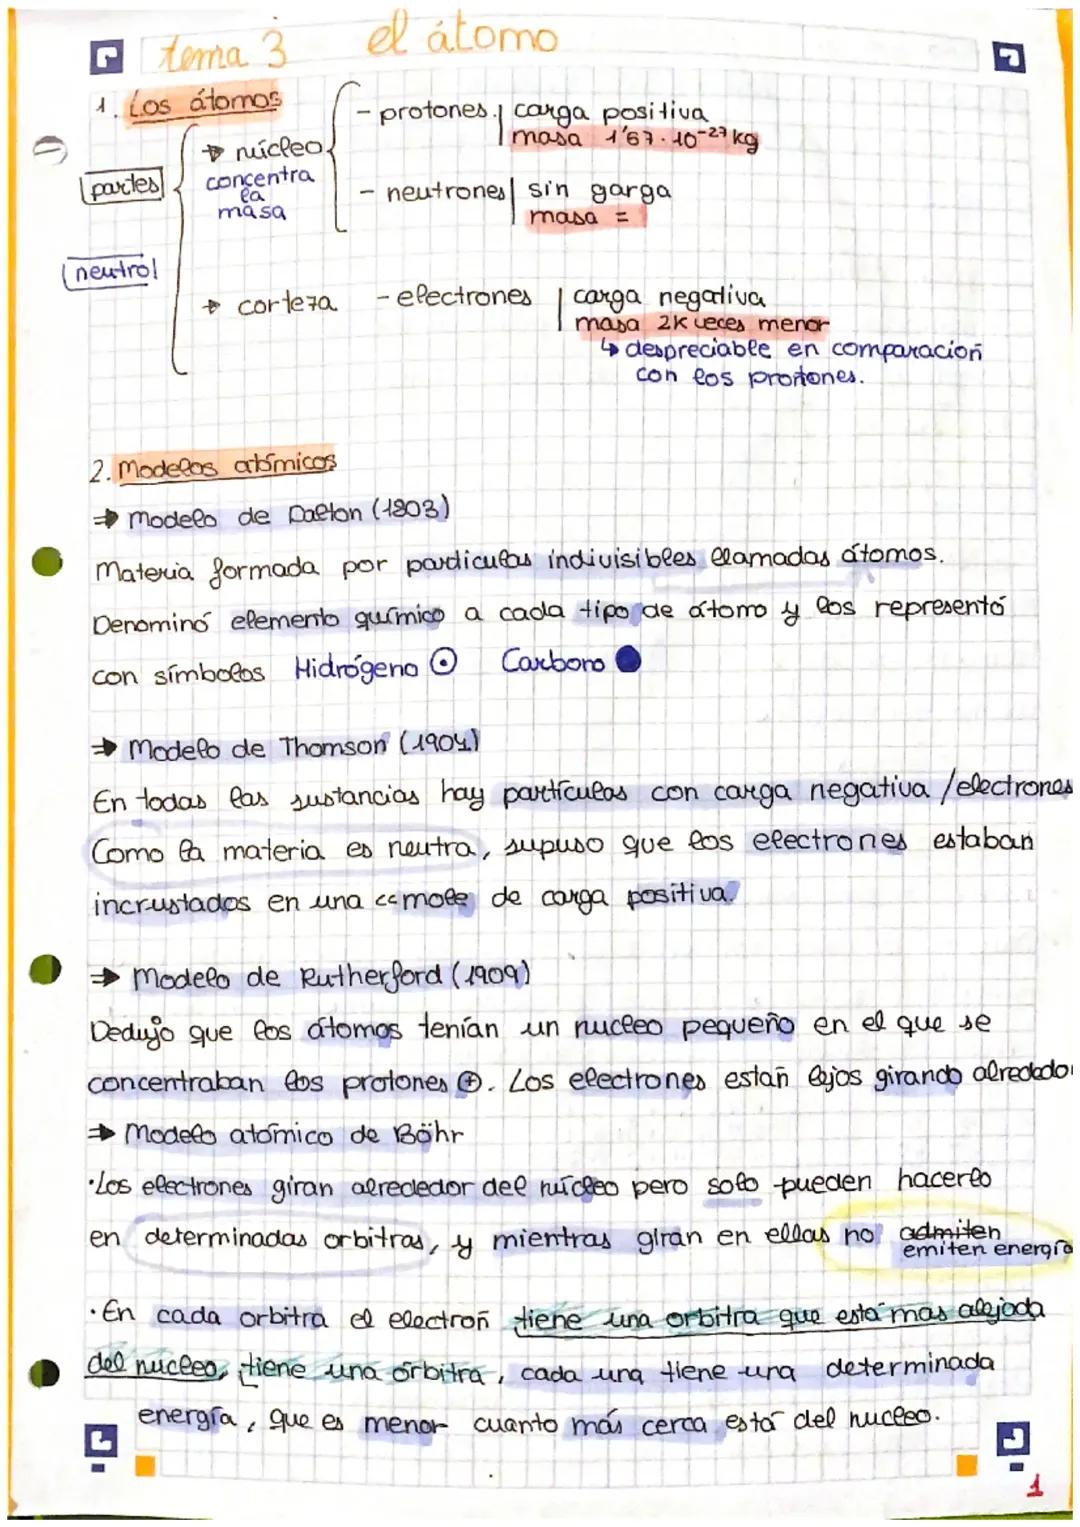 tema 3 el átomo
1. Los átomos
partes
neutro
→ núcleo
concentra
la
masa
- protones
carga positiva
masa 1'67 · 10-27 kg
- neutrones
sin garga
masa =
→ corteza - electrones
carga negativa
masa 2K veces menor
↳ despreciable en comparación
con los protones.
2. Modelos atómicos
⇒ Modelo de Dalton (1803)
Materia formada por particulas indivisibles llamadas átomos.
Denominó elemento químico a cada tipo de átomo y los representó
con símbolos Hidrógeno ⊙ Carbono ●
⇒ Modelo de Thomson (1904)
En todas las sustancias hay partículas con carga negativa /electrones
Como la materia es neutra, supuso que los electrones estaban
incrustados en una <<mole de carga positiva.
⇒ Modelo de Rutherford (1909)
Dedujo que los átomos tenían un nucleo pequeño en el que se
concentraban los protones ⊕. Los electrones están lejos girando alrededor
⇒ Modelo atómico de Böhr
·Los electrones giran alrededor del núcleo pero solo pueden hacerlo
en determinadas orbitras, y mientras giran en ellas no admiten
emiten energía
·En cada orbitra el electrón tiene una orbitra que está mas alejada
del nucleo, tiene una órbitra, cada una tiene una determinada
energía, que es menor cuanto más cerca está del nucleo.
1